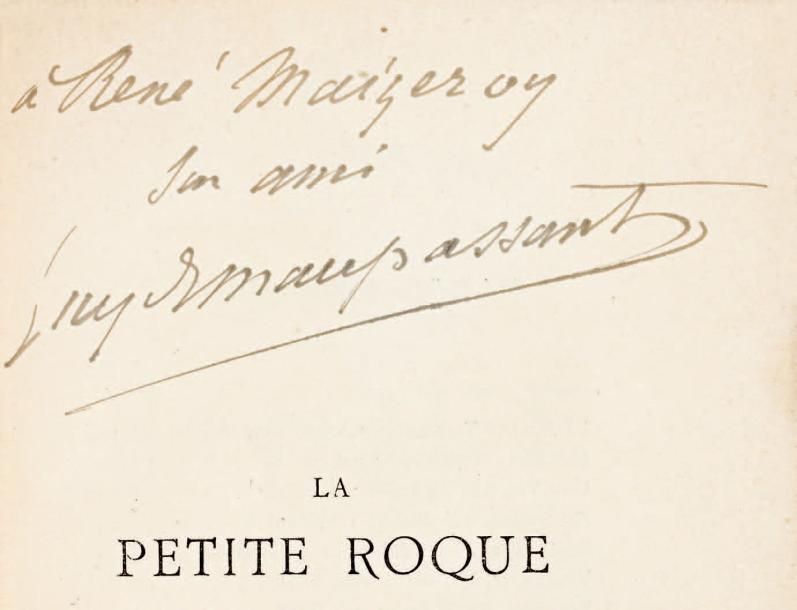 à René Maizeroy
son ami
Guy de Maupassant
LA
PETITE ROQUE